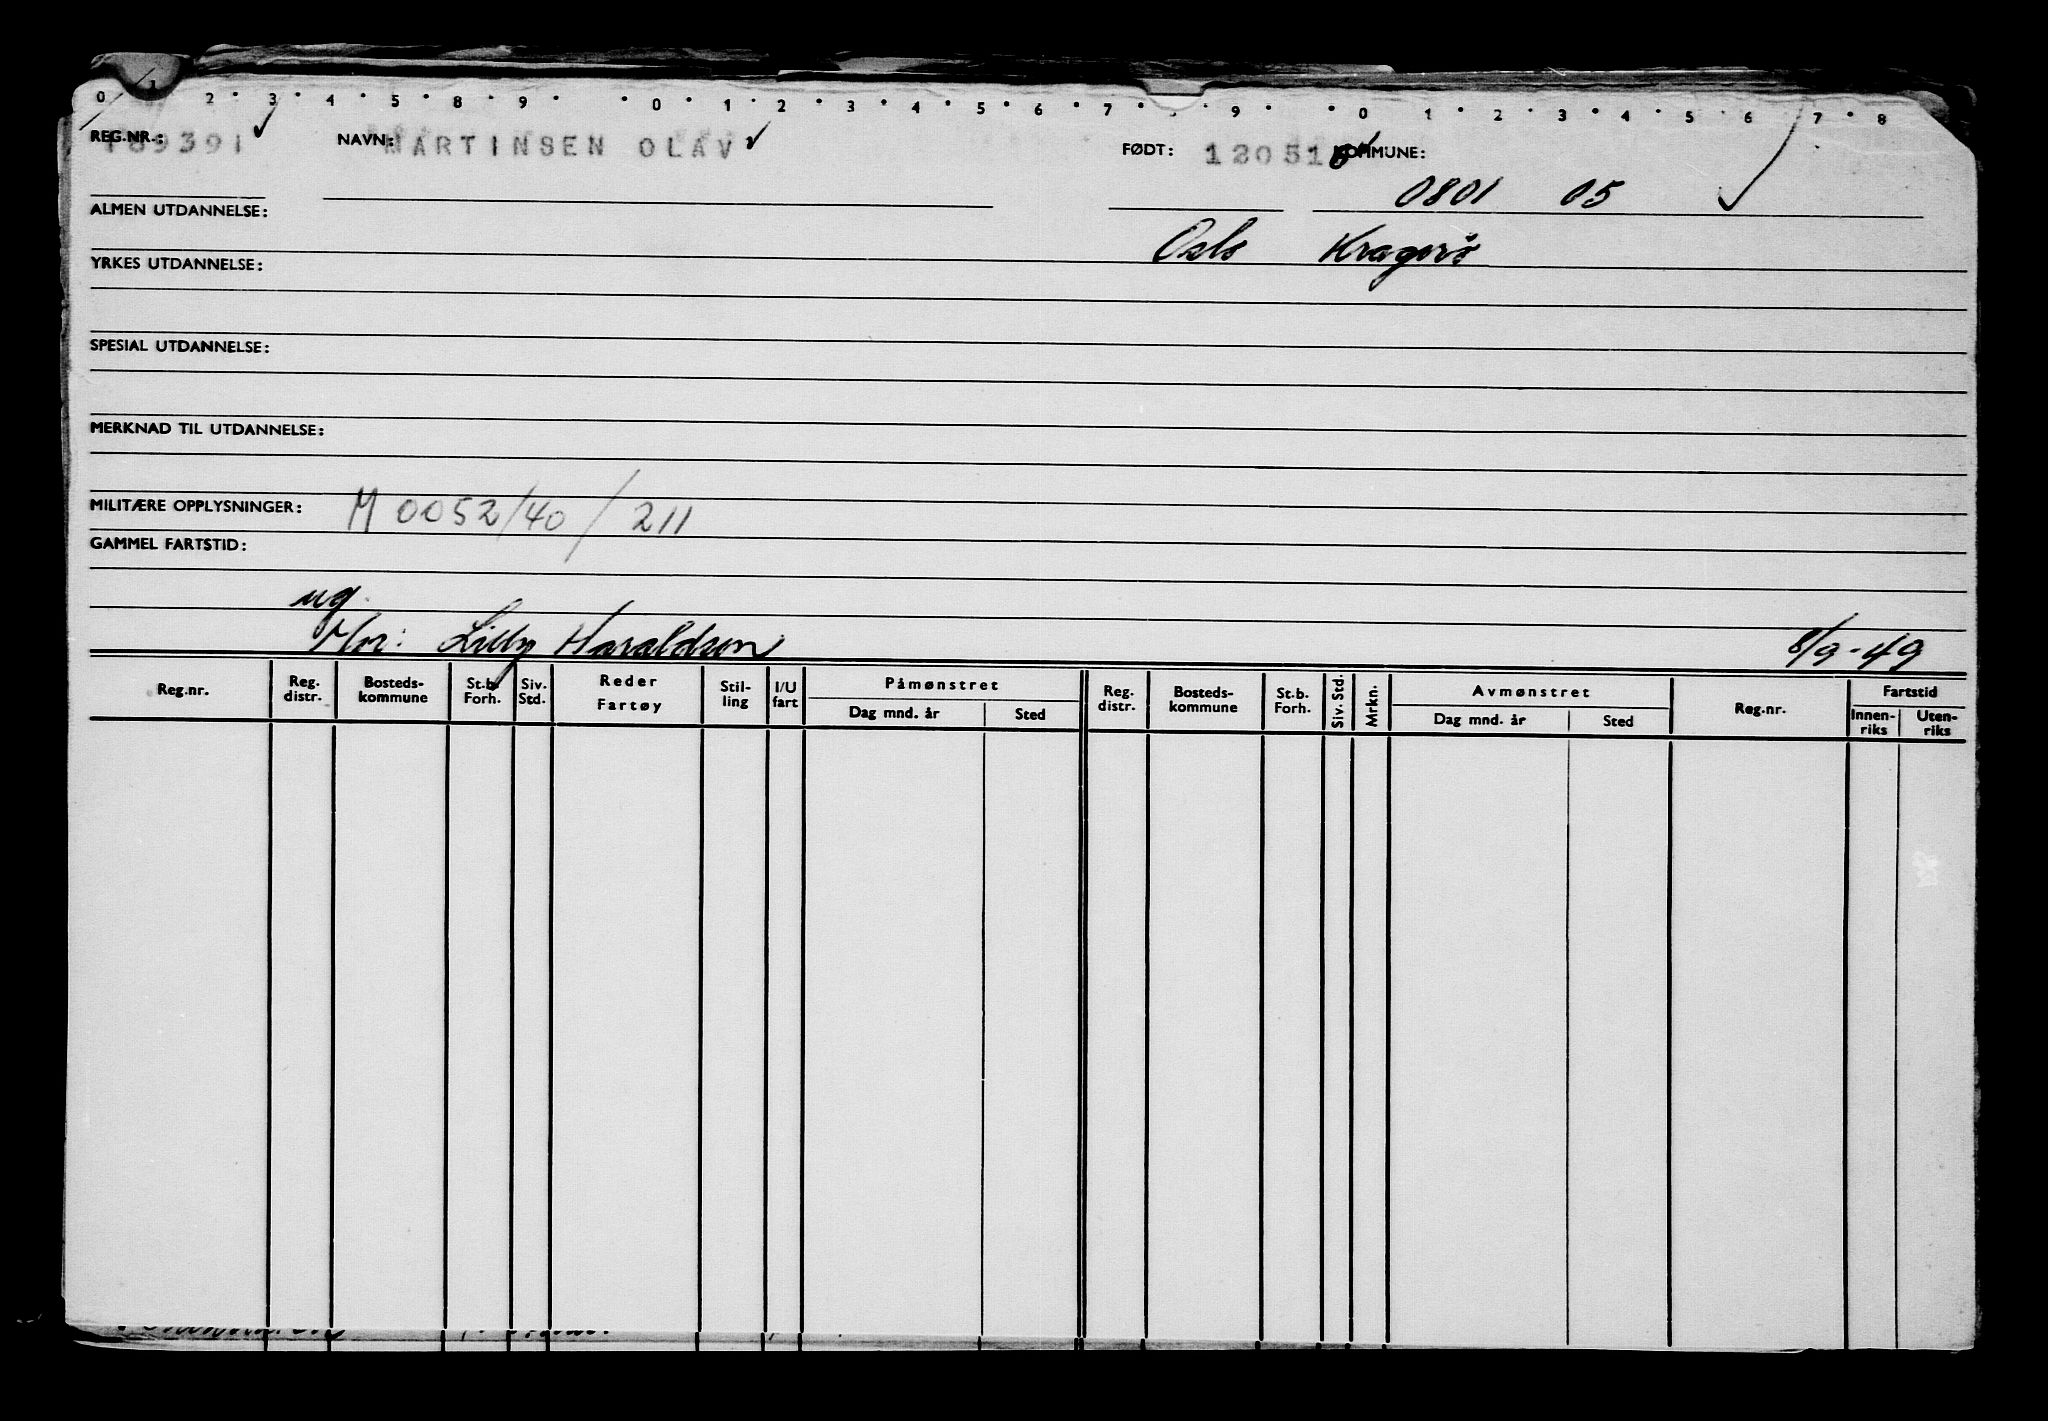 0 1 2 3 4 5 8 9 0 1 2 3 4 5 6 7 9 0 1 2 3 4 5 6 7 8
REG.NR.: 89391 NAVN: MARTINSEN OLAV FØDT: 12051 KOMMUNE:
0801 05
ALMEN UTDANNELSE:
Oslo Kragerø
YRKES UTDANNELSE:
SPESIAL UTDANNELSE:
MERKNAD TIL UTDANNELSE:
MILITÆRE OPPLYSNINGER: M 0052/40 / 211
GAMMEL FARTSTID:
ug.
Mor: Lilly Haraldsen 8/9-49
Reg.nr. Reg. distr. Bosteds-kommune St.b. Forh. Siv. Std. Reder Fartøy Stil-ling I/U fart Påmønstret Dag mnd. år Sted Reg. distr. Bosteds-kommune St.b. Forh. Siv. Std. Mrkn. Avmønstret Dag mnd. år Sted Reg.nr. Fartstid Innen-riks Uten-riks